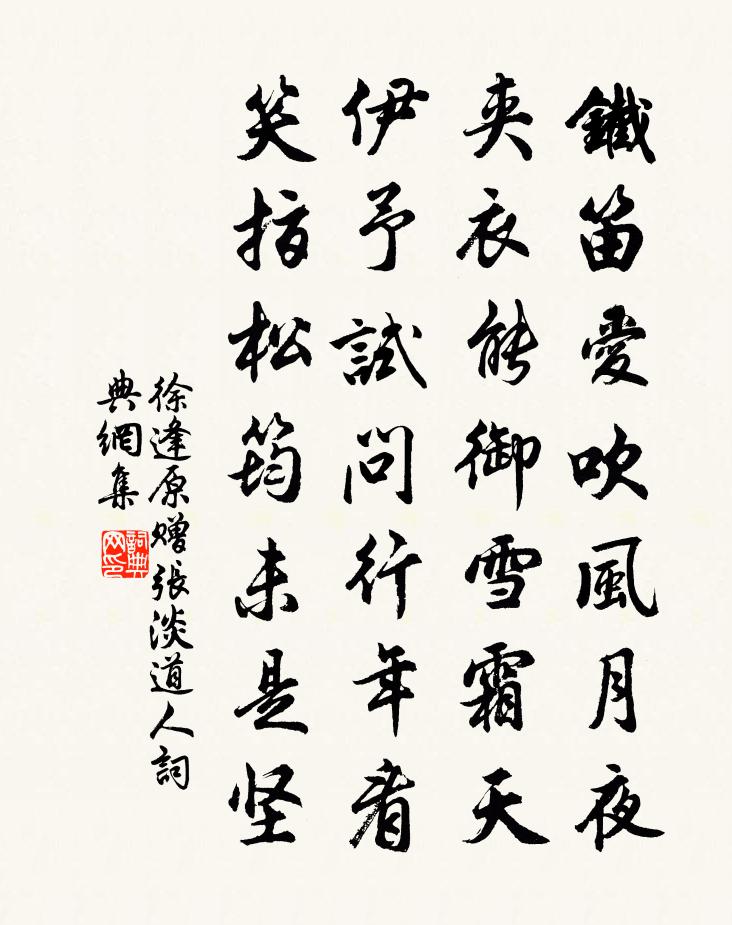 鐵笛愛吹風月夜
夹衣能御雪霜天
伊予試問行年看
笑指松筠未是坚
徐逢原赠張淡道人詞
典網集
詞典
网印